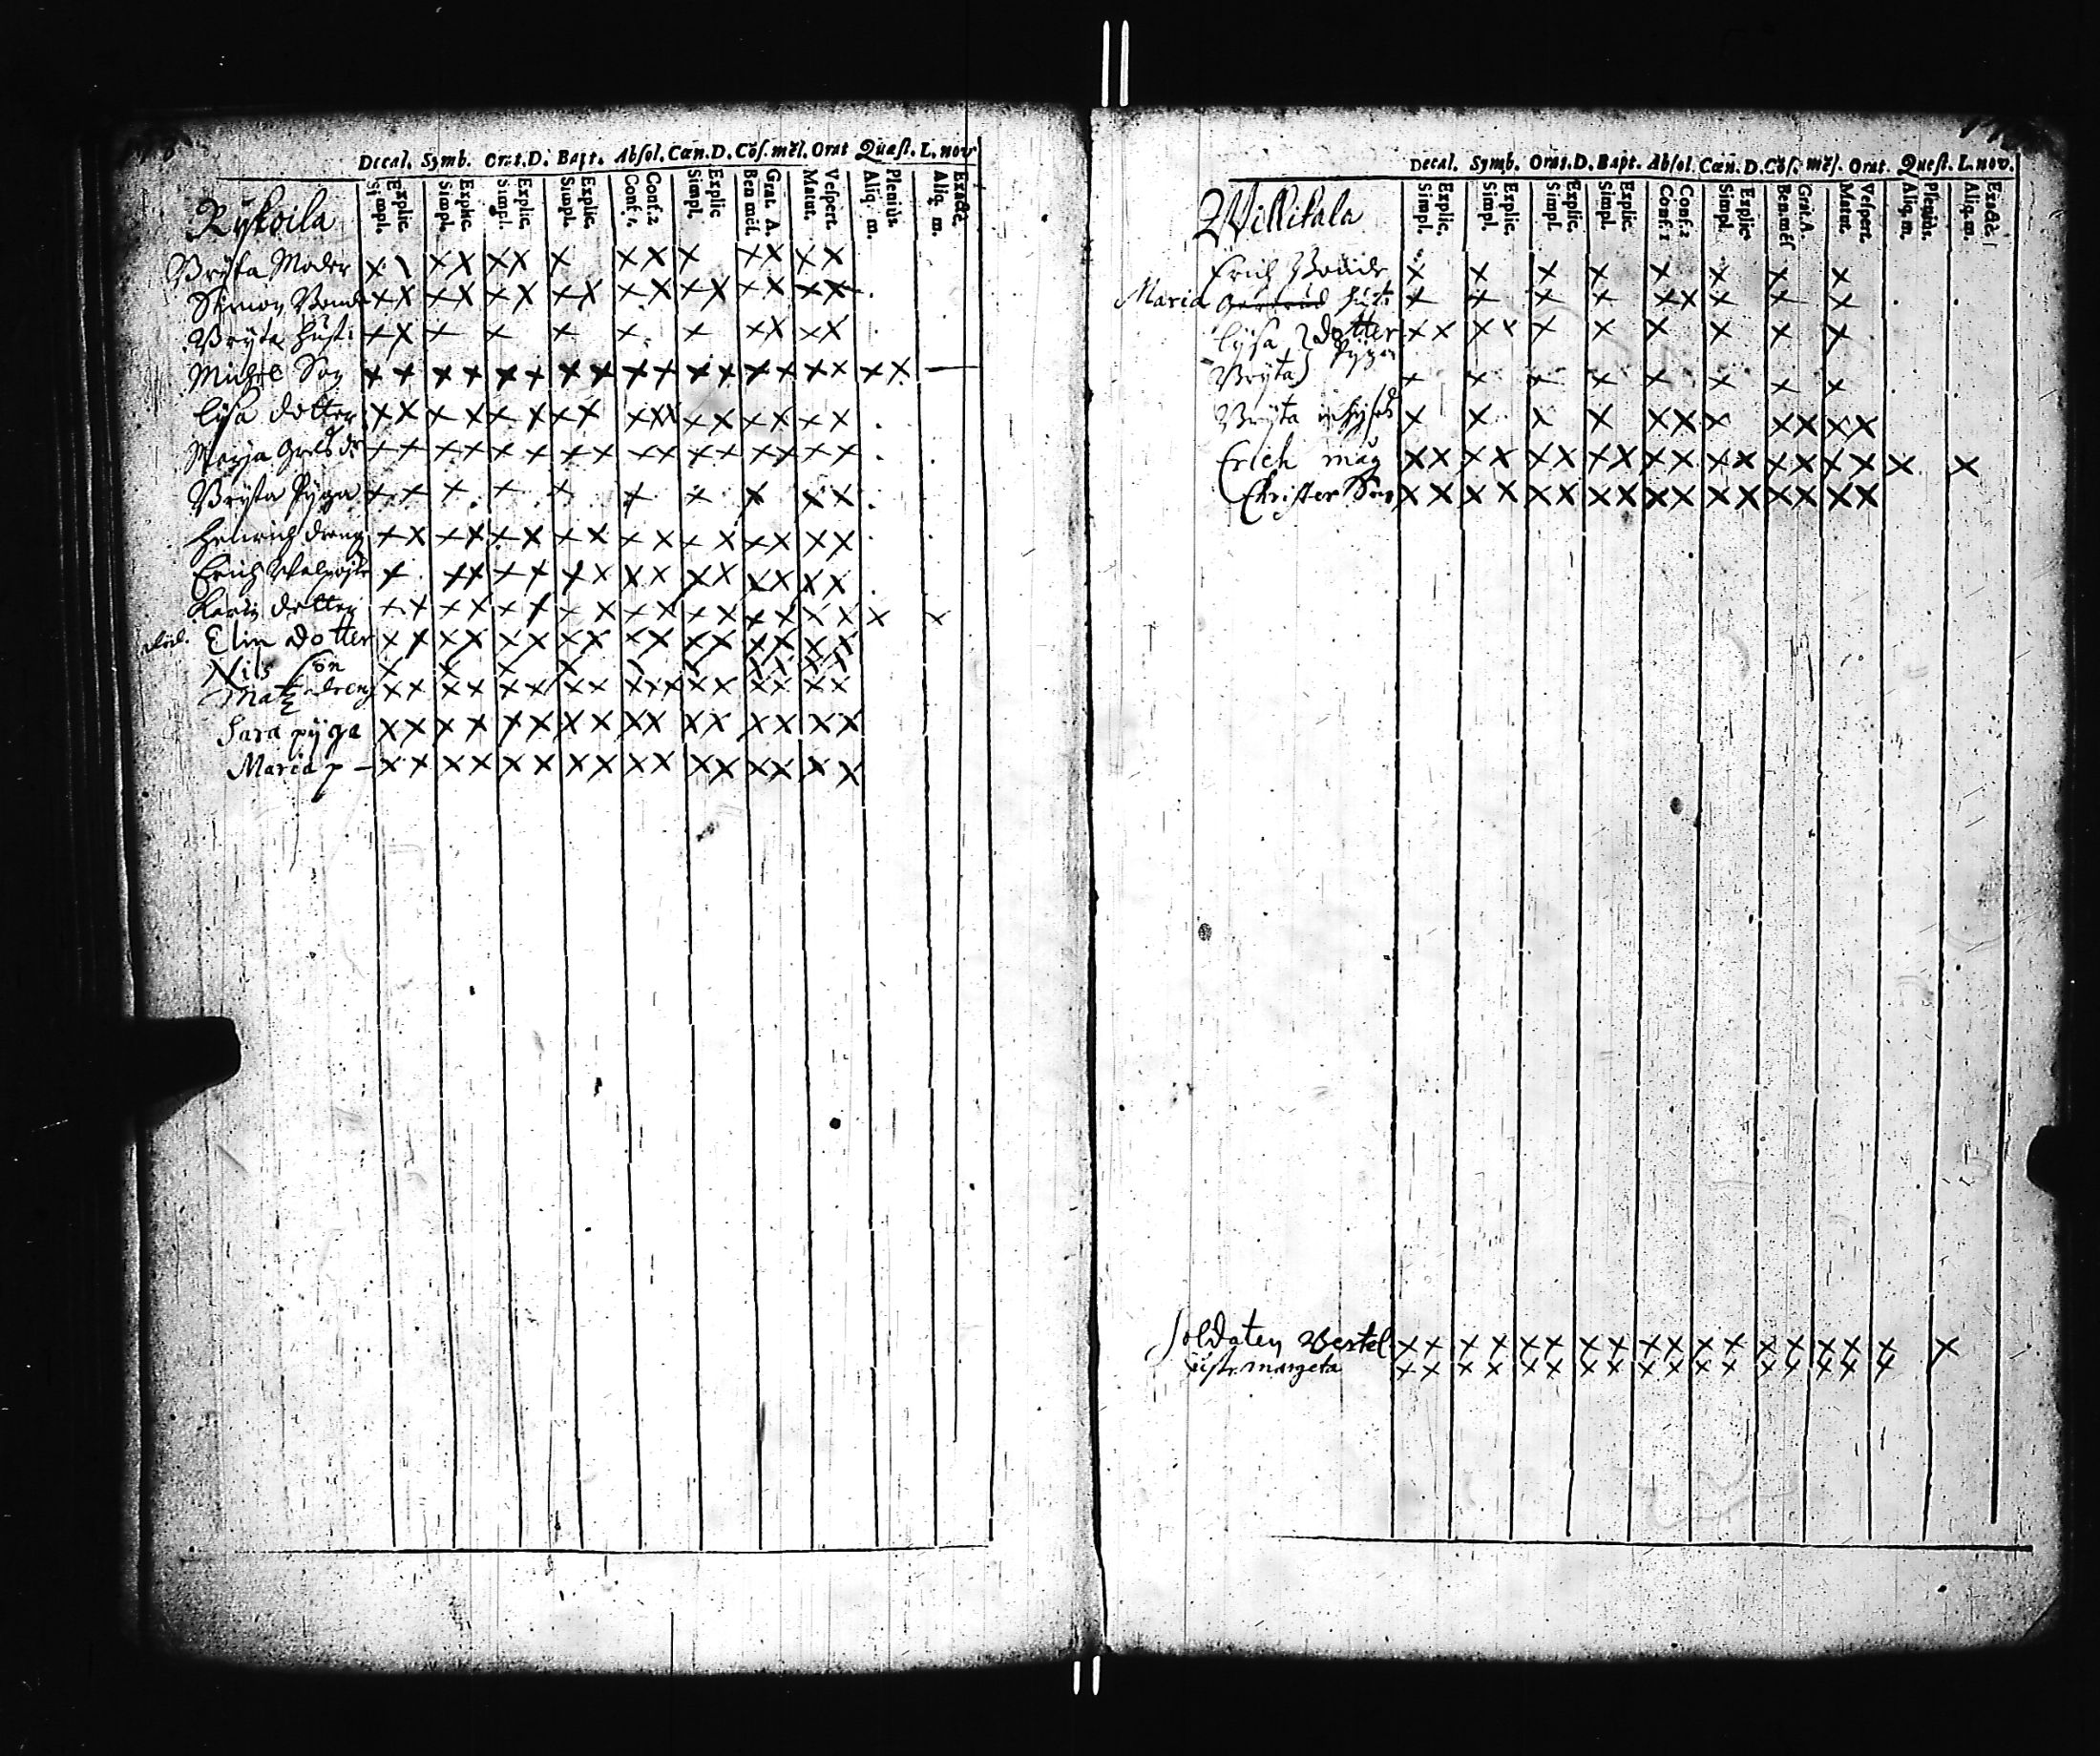 Decal. Symb. Orat.D. Bapt. Absol. Cœn.D. Cōf. mēl. Orat Quæst. L. nov
Simpl. Explic. Simpl. Explic. Simpl. Explic. Simpl. Explic. Conf. 1. Conf. 2 Simpl. Explic Ben mēs. Grat. A. Matut. Vespert. Aliq. m. Pleniùs. Aliq. m. Exactè.
Rykoila
Bryta Moder
Simon Bonde
Bryta hust:
Michel Son
Lysa dotter
Marja Grels dr
Bryta Pyga
Henrich dreng
Erich
Karin dotter
Elin dotter
Nils son
Matz dreng
Sara pyga
Maria p –
Decal. Symb. Orat.D. Bapt. Absol. Cœn. D. Cōs. mēs. Orat. Quest. L. nov.
Simpl. Explic. Simpl. Explic. Simpl. Explic. Simpl. Explic. Conf. 1 Conf. 2 Simpl. Explic Ben. mēs Grat. A. Matut. Vespert. Aliq. m. Pleniùs. Aliq. m. Exactè.
Willikala
Erich Bonde
Maria Gertrud hust:
Lysa dotter
Bryta Pygor
Bryta
Erich måg
Christer Son
Soldaten Bertel
hustr. margeta